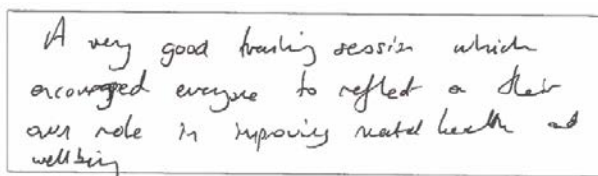 A very good training session which
encouraged everyone to reflect on their
own role in improving mental health and
wellbeing